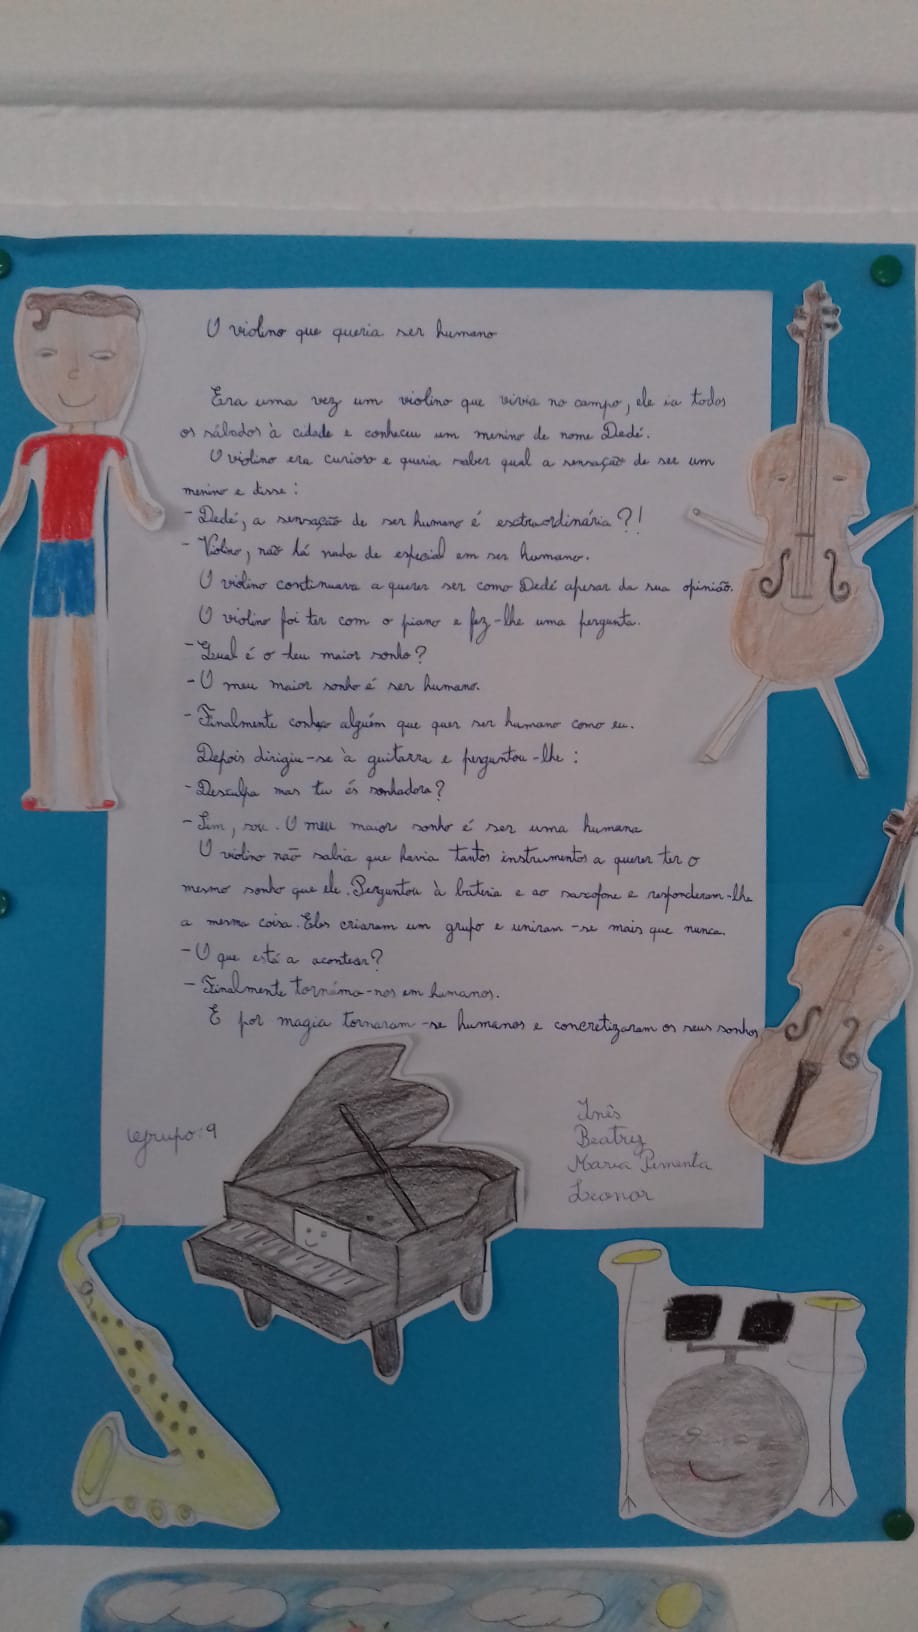 O violino que queria ser humano
Era uma vez um violino que vivia no campo, ele ia todos
os sábados à cidade e conheceu um menino de nome Dedé.
O violino era curioso e queria saber qual a sensação de ser um
menino e disse:
- Dedé, a sensação de ser humano é extraordinária?!
- Violino, não há nada de especial em ser humano.
O violino continuava a querer ser como Dedé apesar da sua opinião.
O violino foi ter com o piano e fez-lhe uma pergunta.
- Qual é o teu maior sonho?
- O meu maior sonho é ser humano.
- Finalmente conheço alguém que quer ser humano como eu.
Depois dirigiu-se à guitarra e perguntou-lhe:
- Desculpa mas tu és sonhadora?
- Sim, sou. O meu maior sonho é ser uma humana
O violino não sabia que havia tantos instrumentos a querer ter o
mesmo sonho que ele. Perguntou à bateria e ao saxofone e responderam-lhe
a mesma coisa. Eles criaram um grupo e uniram-se mais que nunca.
- O que está a acontecer?
- Finalmente tornámo-nos em humanos.
E por magia tornaram-se humanos e concretizaram os seus sonhos
Grupo: 9
Inês
Beatriz
Maria Pimenta
Leonor